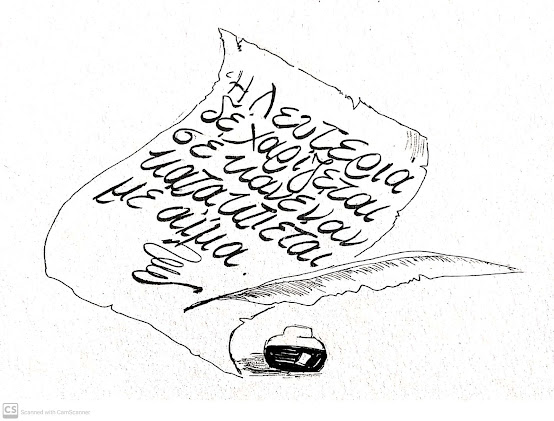 Η λευτεριά
δε χαρίζεται
σε κανέναν
κατακτιεται
με αίμα.
CS Scanned with CamScanner